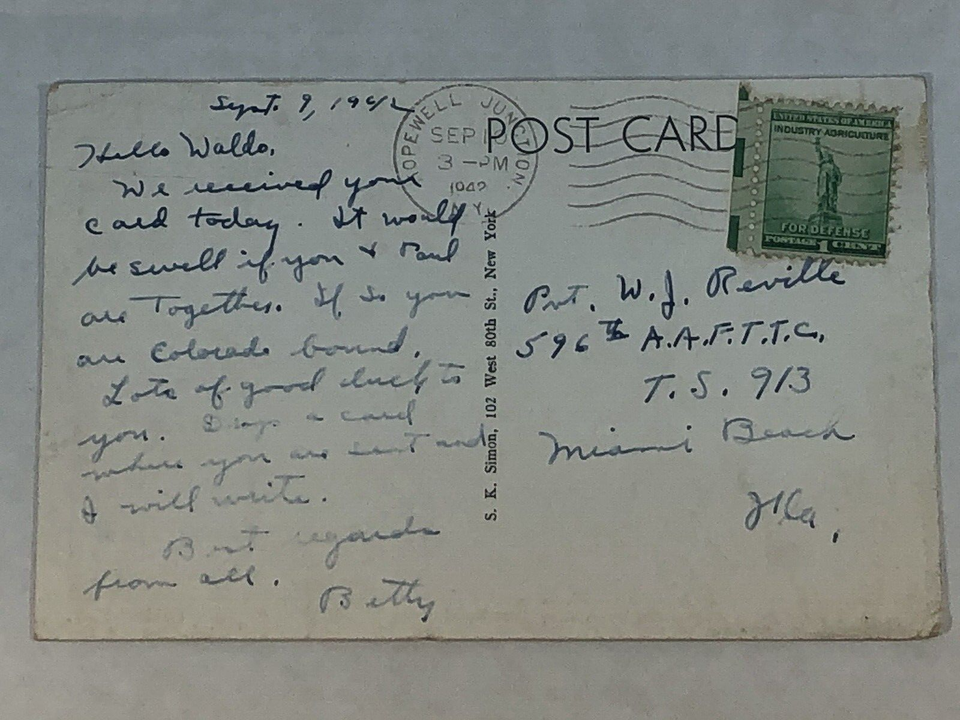 Sept. 9, 1942
Hello Waldo,
We received your
card today. It would
be swell if you & Paul
are Together. If so you
are Colorado bound.
Lots of good luck to
you. Drop a card
where you are sent and
I will write.
Best regards
from all.
Betty
HOPEWELL JUNCTION.
SEP
3 - PM
1942
N.Y.
POST CARD
UNITED STATES OF AMERICA
INDUSTRY AGRICULTURE
FOR DEFENSE
POSTAGE 1 CENT
S. K. Simon, 102 West 80th St., New York
Pvt. W. J. Reville
596th A.A.F.T.T.C.
T. S. 913
Miami Beach
Fla.